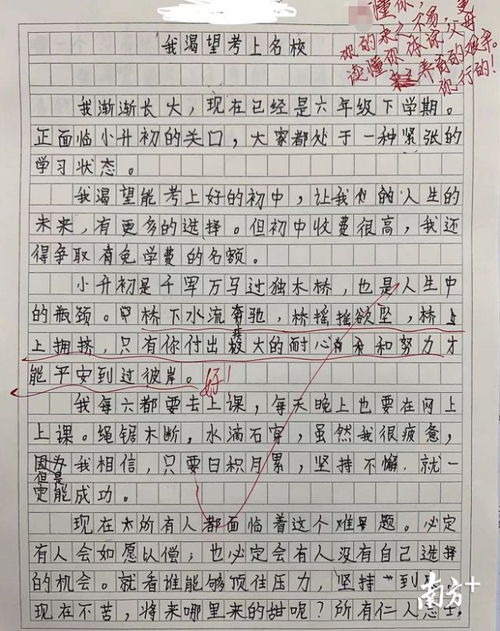 懂你,
你的来之不易,父母
读懂你,你亦
养育的艰辛。
你行的!
我渴望考上名校
我渐渐长大,现在已经是六年级下学期。
正面临小升初的关口,大家都处于一种紧张的
学习状态。
我渴望能考上好的初中,让我们的人生的
未来,有更多的选择。但初中收费很高,我还
得争取有免学费的名额。
小升初是千军万马过独木桥,也是人生中
的瓶颈。桥下水流奔驰,桥摇摇欲坠,桥上
上拥挤,只有你付出极大的耐心和努力才
能平安到过彼岸。好!
我每六都要去上课,每天晚上也要在网上
上课。绳锯木断,水滴石穿,虽然我很疲惫,
但是我相信,只要日积月累,坚持不懈,就一
定能成功。
现在所有人都面临着这个难题。必定
有人会如愿以偿;也必定会有人没有自己选择
的机会。就看谁能够顶住压力,坚持到
现在不苦,将来哪里来的甜呢?所有仁人志士
南方+